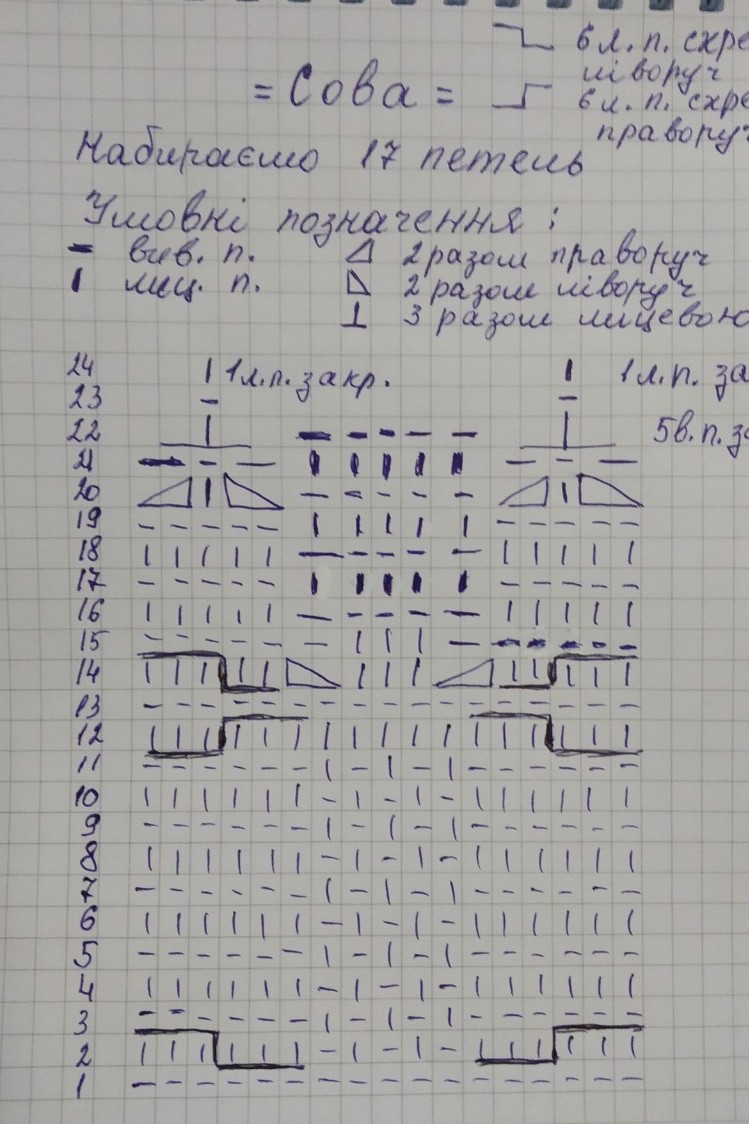 6 л. п. схре
ліворуч
= Сова =
6 л. п. схре
праворуч
Набираємо 17 петель
Умовні позначення :
вив. п.
2 разом праворуч
лиц. п.
2 разом ліворуч
3 разом лицевою
24
1 л. п. закр.
1 л. п. за
23
22
5 в. п. за
21
20
19
18
17
16
15
14
13
12
11
10
9
8
7
6
5
4
3
2
1